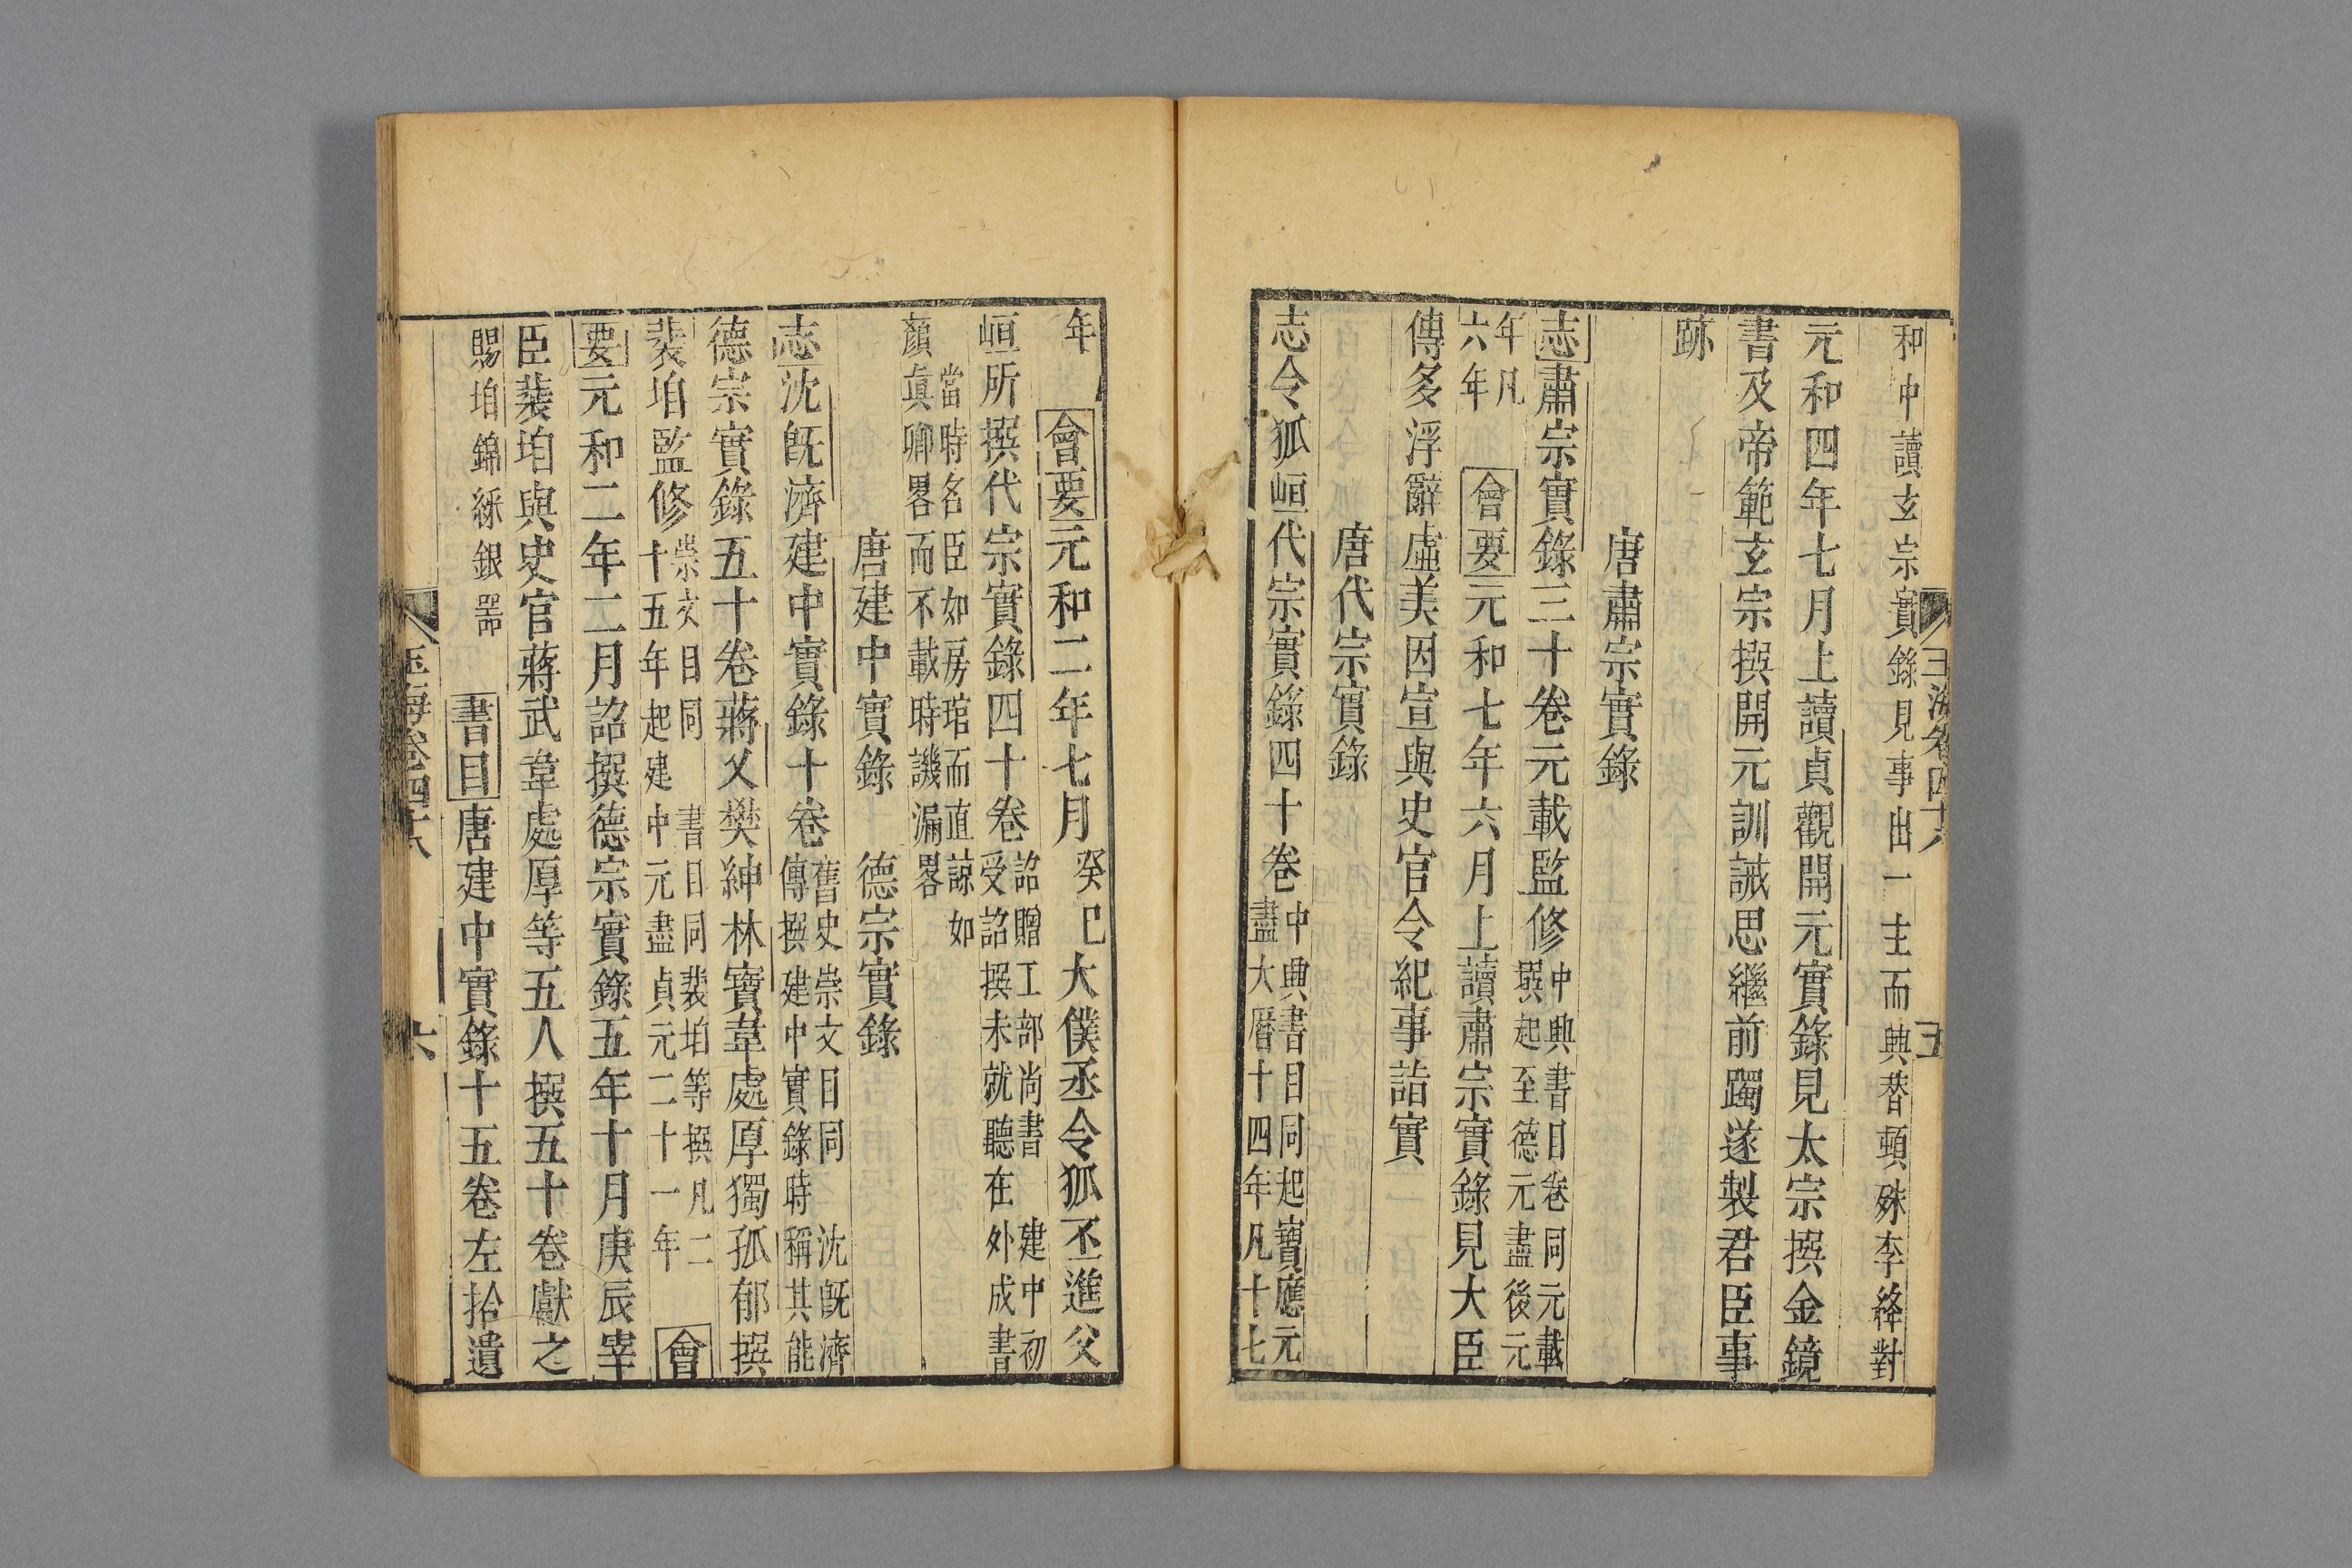 和中讀玄宗實錄見事出一主而興替頓殊李絳對
元和四年七月上讀貞觀開元實錄見太宗撰金鏡
書及帝範玄宗撰開元訓誡思繼前躅遂製君臣事
跡
唐肅宗實錄
志肅宗實錄三十卷元載監修中興書目卷同元載
撰起至德元盡後元
年凡
六年
會要元和七年六月上讀肅宗實錄見大臣
傳多浮辭虛美因宣與史官令紀事詣實
唐代宗實錄
志令狐峘代宗實錄四十卷中興書目同起寶應元
盡大曆十四年凡十七
玉海卷四十八
五
年
會要元和二年七月癸巳大僕丞令狐丕進父
峘所撰代宗實錄四十卷詔贈工部尚書 建中初
受詔撰未就聽在外成書
當時名臣如房琯而直諒如
顏真卿畧而不載時譏漏畧
唐建中實錄 德宗實錄
志沈旣濟建中實錄十卷舊史崇文目同 沈旣濟
傳撰建中實錄時稱其能
德宗實錄五十卷蔣乂樊紳林寶韋處厚獨孤郁撰
裴垍監修崇文目同 書目同裴垍等撰凡二
十五年起建中元盡貞元二十一年
會
要元和二年二月詔撰德宗實錄五年十月庚辰宰
臣裴垍與史官蔣武韋處厚等五人撰五十卷獻之
賜垍錦綵銀器 書目唐建中實錄十五卷左拾遺
玉海卷四十八
六